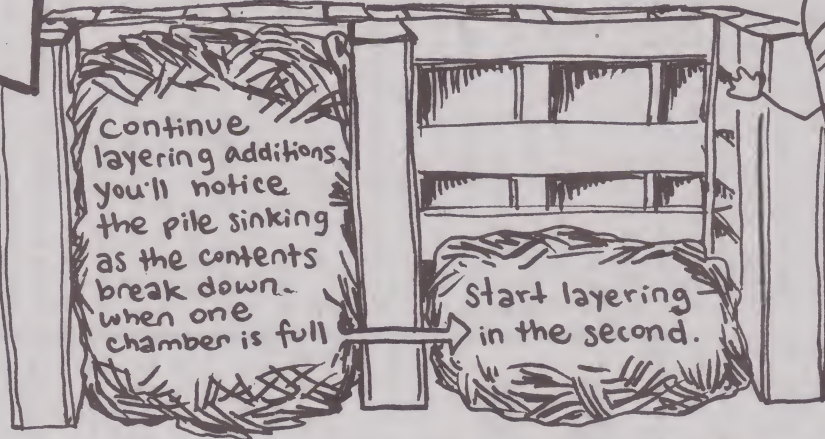 continue
layering additions.
you'll notice
the pile sinking
as the contents
break down.
when one
chamber is full
start layering
in the second.